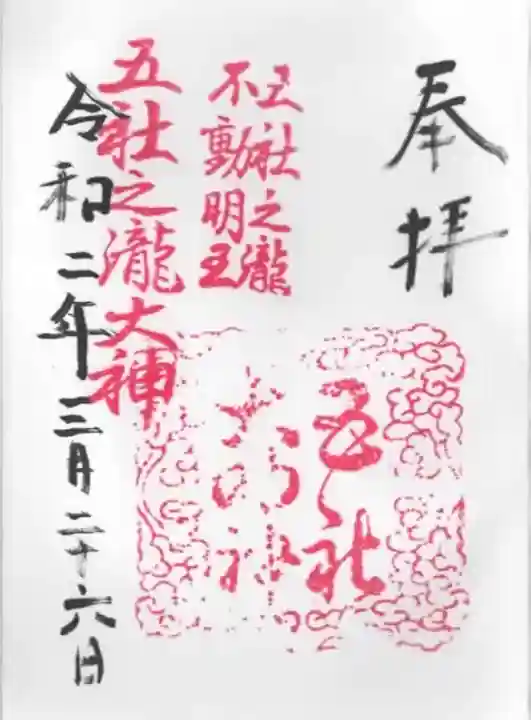 奉拝
五社之瀧
不動明王
五社之瀧大神
五社
大明神
令和二年三月二十六日